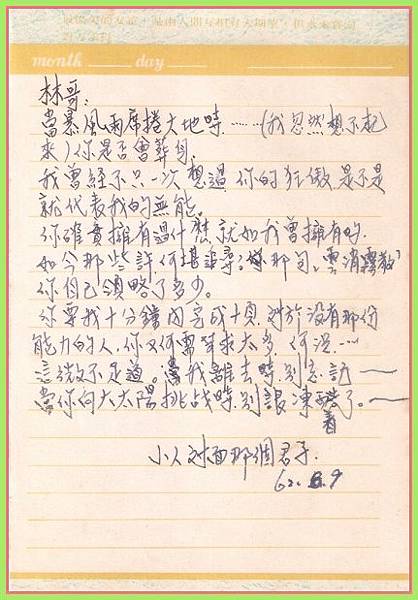 month day
林哥：
當暴風雨席捲大地時……(我忽然想不起
來)你是否會葬身
我曾經不只一次想過你的狂傲是不是
就代表我的無能。
你確實擁有過什麼就如我曾擁有的
如今那些許何堪追尋。剎那間，雲消霧散
你自己領略了多少。
你要我十分鐘內完成十頃，對於沒有那份
能力的人，你又何需苛求太多，何況……
這微不足道。當我離去時，別忘記——
當你向大太陽挑战時，別讓凍著了。——
小人对面那個君子.
62. 9